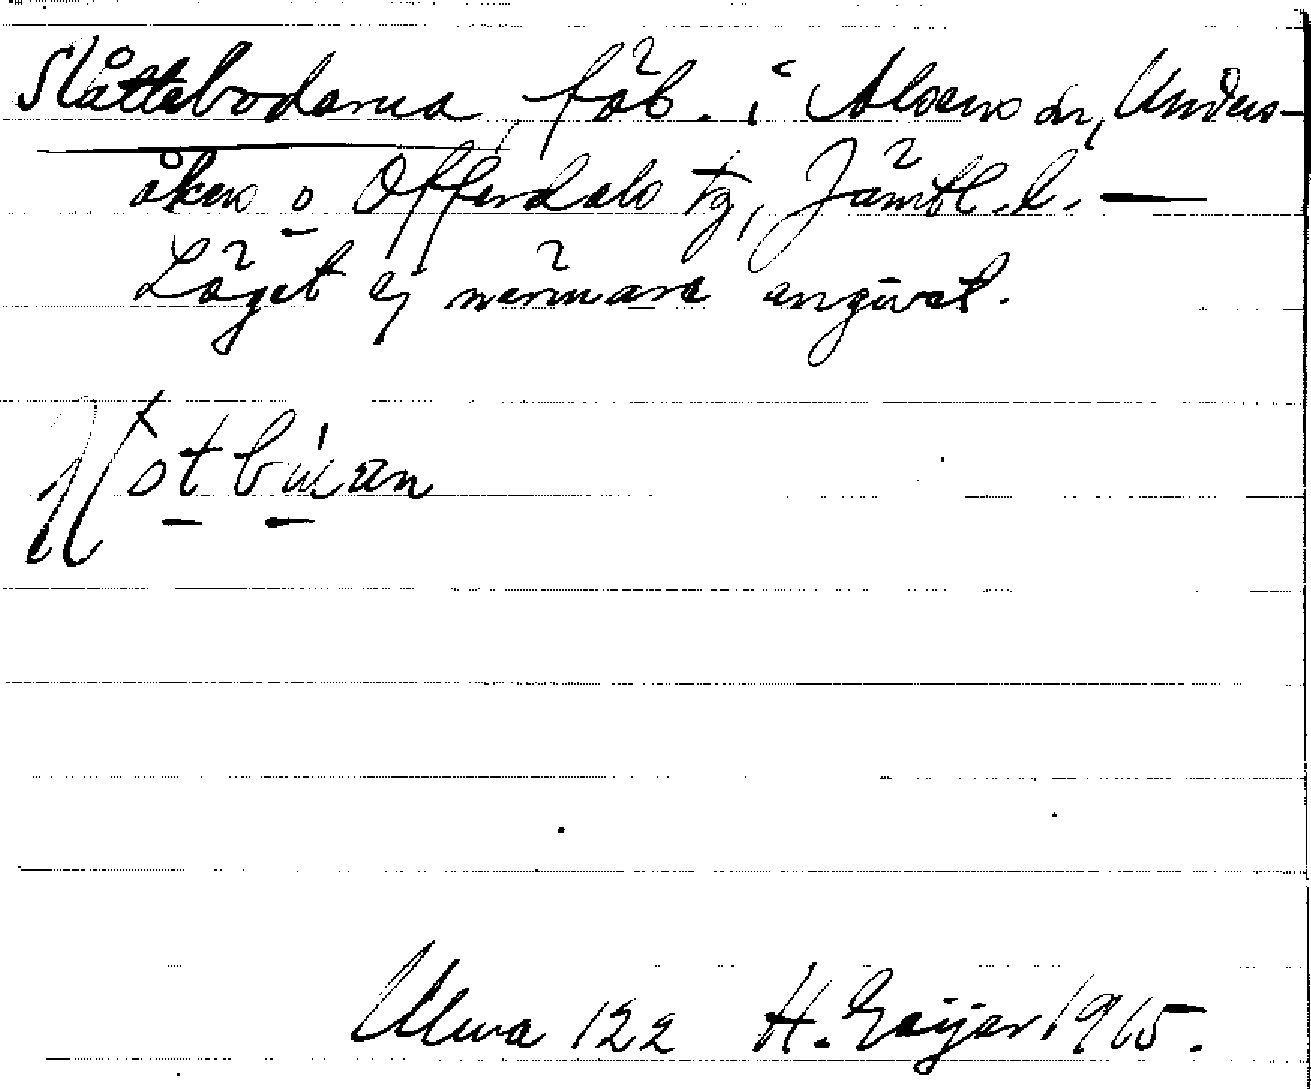 Slåttebodarna, fäb. i Alsens sn, Unders-
åkers o Offerdals tg, Jämtl. l. —
Läget ej närmare angivet.
Ulma 122 H. Geijer 1915.